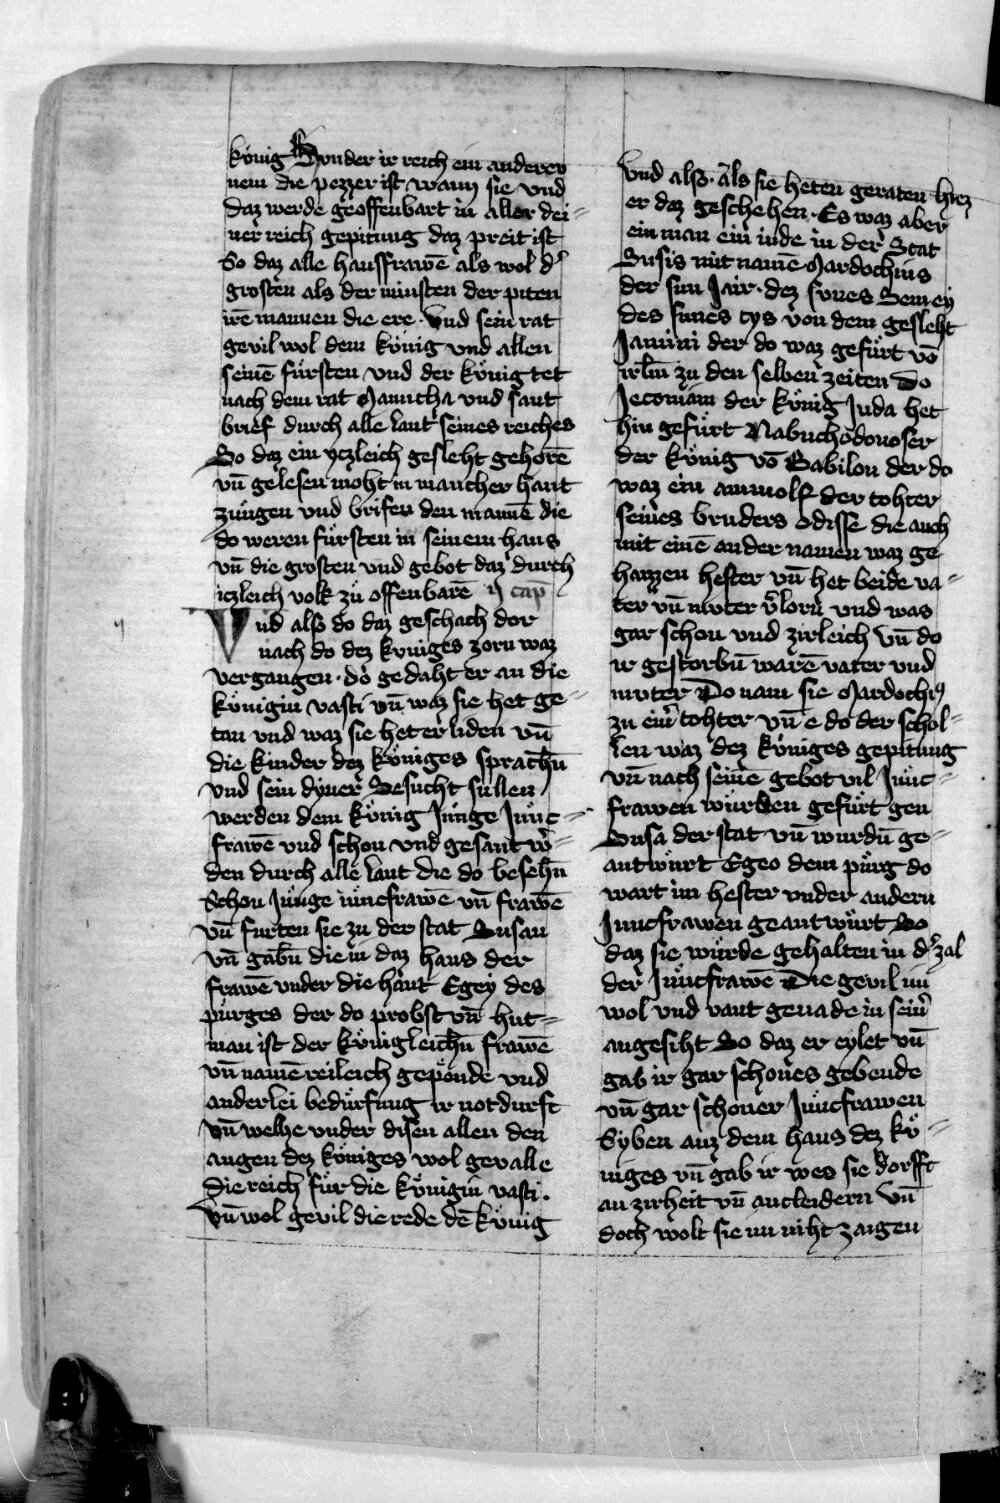 könig Sunder ir reich ein anderev
nem die pezzer ist wann sie Und
daz werde geoffenbart in aller dei=
ner reich gepitung daz preit ist
So daz alle hausfrawē als wol d'
grosten als der minsten der piten
irē mannen die ere · Und sein rat
gevil wol dem könig und allen
seinē fürsten und der könig tet
nach dem rat Mamucha und sant
brief durch alle lant seines reiches
So daz ein yczleich gesleht gehorē
vn̄ gelesen moht in mancher hant
zungen und brifen den mannē die
do weren fürsten in seinem haus
vn̄ die grosten und gebot daz durch
iczleich volk zü offenbarē ij cap̄
Und alß do daz geschach dor
nach do dez kuniges zorn waz
vergangen · do gedaht er an die
königin vasti vn̄ waz sie het ge=
tan und waz sie het erliden vn̄
die kinder dez königes sprachn̄
und sein dyner Besucht süllen
werden dem könig Junge Junc=
frawē und schon und gesant w̄=
den durch alle lant die do besehn̄
Schon Junge iuncfrawē vn̄ frawē
vn̄ furten sie zu der stat Susan
vn̄ gabn̄ die in daz haus der
frawē under die hant Egey des
pürges der do probst vn̄ hut=
man ist der königleichn̄ frawē
vn̄ namē reileich geponde und
anderlei bedürfung ir notdurft
vn̄ welhe under disen allen den
augen dez königes wol gevalle
die reich für die königin vasti ·
vn̄ wol gevil die rede dē könig
Und alß · als sie heten geraten hiez
er daz geschehen · Es waz aber
ein man ein iude in der Stat
Susis mit namē Mardochius
der sun Jair · dez sones Semey
des sunes cys von dem gesleht
Jamini der do waz gefürt vō
irlm̄ zu den selben zeiten Do
Jeconiam der könig Juda het
hin gefürt Nabuchodonoser
der könig vō Babilon der do
waz ein ammolf der tohter
seines bruders Edisse die auch
mit einē ander namen waz ge
haizzen hester vn̄ het beide va=
ter vn̄ muter v̄lorn und was
gar schon und zirleich Vn̄ do
ir gestorbn̄ warē vater und
muter Do nam sie Mardochi9
zu eim̄ tohter vn̄ e do der schol=
len waz dez königes gepitung
vn̄ nach seinē gebot vil Junc=
frawen würden gefürt gen
Susa der stat vn̄ wurdn̄ ge=
antwürt Egeo dem pürg do
wart im hester under andern
Juncfrawen geantwürt So
daz sie würde gehalten in d' zal
der Juncfrawē Die gevil im
wol und vant genade in sein̄
angesiht So daz er eylet vn̄
gab ir gar schones gebende
vn̄ gar schoner Juncfrawen
Syben auz dem haus dez kö=
niges vn̄ gab ir wes sie dorfft
an zirheit vn̄ ancleidern Vn̄
doch wolt sie im niht zaigen